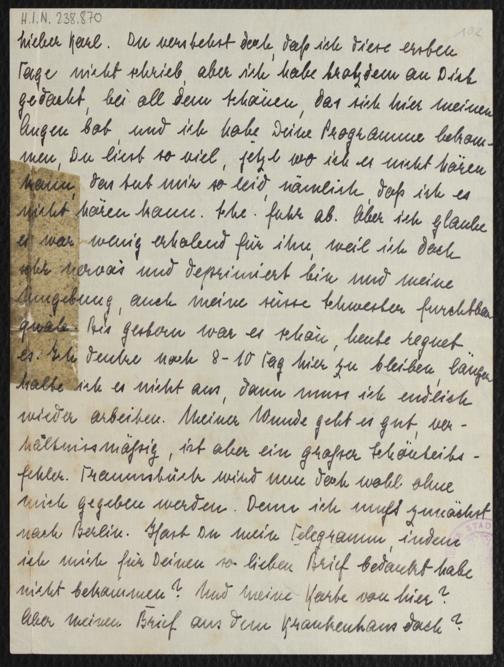 H.I.N. 238.870
102
Lieber Karl. Du verstehst doch, daß ich diese ersten
Tage nicht schrieb, aber ich habe trotzdem an Dich
gedacht, bei all dem Schönen, das sich hier meinen
Augen bot, und ich habe Deine Programme bekom-
men, Du liest so viel, jetzt wo ich es nicht hören
kann, das tut mir so leid, nämlich daß ich es
nicht hören kann. fuhr ab. Aber ich glaube
es war wenig erhebend für ihn, weil ich doch
sehr nervös und deprimiert bin und meine
Umgebung, auch meine süsse Schwester furchtbar
quäle. Bis gestern war es schön, heute regnet
es. Ich denke noch 8-10 Tag hier zu bleiben, länger
halte ich es nicht aus, dann muss ich endlich
wieder arbeiten. Meiner Wunde geht es gut, ver-
hältnissmässig, ist aber ein großer Schönheits-
fehler. Traumstück wird nun doch wohl ohne
mich gegeben werden. Denn ich muß zunächst
nach Berlin. Hast Du mein Telegramm, indem
ich mich für Deinen so lieben Brief bedankt habe
nicht bekommen? Und meine Karte von hier?
Aber meinen Brief aus dem Krankenhaus doch?